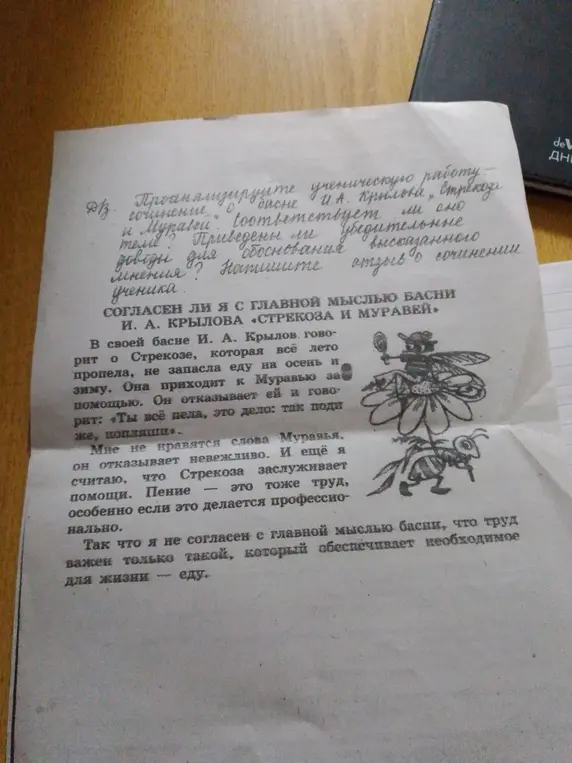 deV
ДНЕ
ДЗ. Проанализируйте ученическую работу –
сочинение о басне И.А. Крылова „Стрекоза
и Муравей". Соответствует ли оно
теме? Приведены ли убедительные
доводы для обоснования высказанного
мнения? Напишите отзыв о сочинении
ученика.
СОГЛАСЕН ЛИ Я С ГЛАВНОЙ МЫСЛЬЮ БАСНИ
И. А. КРЫЛОВА «СТРЕКОЗА И МУРАВЕЙ»
В своей басне И. А. Крылов гово-
рит о Стрекозе, которая всё лето
пропела, не запасла еду на осень и
зиму. Она приходит к Муравью за
помощью. Он отказывает ей и гово-
рит: «Ты всё пела, это дело: так поди
же, попляши».
Мне не нравятся слова Муравья,
он отказывает невежливо. И ещё я
считаю, что Стрекоза заслуживает
помощи. Пение — это тоже труд,
особенно если это делается профессио-
нально.
Так что я не согласен с главной мыслью басни, что труд
важен только такой, который обеспечивает необходимое
для жизни — еду.